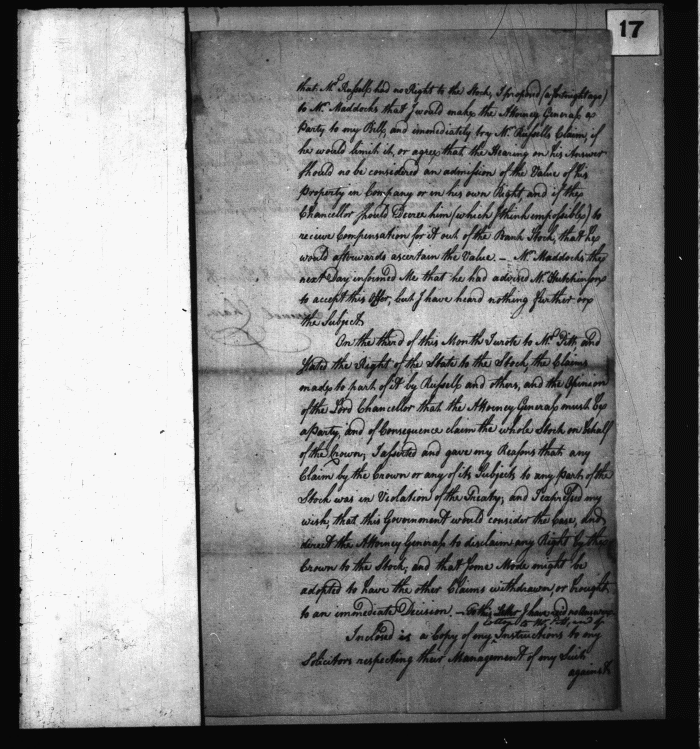 17
that Mr. Russell had no Right to the Stock, I proposed (a fortnight ago)
to Mr. Maddocks that I would make the Attorney General a
Party to my Bill, and immediately try Mr. Russells Claim, if
he would limit it, or agree that the Hearing on his Answer
should no be considered an admission of the Value of his
Property in Company or in his own Right, and if the
Chancellor should Decree him (which I think impossible) to
receive Compensation for it out of the Bank Stock, that he
would afterwards ascertain the Value — Mr. Maddocks the
next Day informed Me that he had advised Mr. Hutchinson
to accept this Offer, but I have heard nothing further on
the Subject.
On the third of this Month I wrote to Mr. Pitt, and
Stated the Right of the State to the Stock, the Claims
made to part of it by Russell and others, and the Opinion
of the Lord Chancellor that the Attorney General must be
a Party, and of Consequence claim the whole Stock on behalf
of the Crown; I asserted and gave my Reasons that any
Claim by the Crown or any of its Subjects to any part of the
Stock was in Violation of the Treaty; and I expressed my
wish, that this Government would consider the Case, and
direct the Attorney General to disclaim any Right by the
Crown to the Stock; and that some Mode might be
adopted to have the other Claims withdrawn, or brought
to an immediate Decision. — To this Letter I have no answer
Letter to Mr. Pitt, and of
Inclosed is a Copy of my Instructions to my
Solicitors respecting their Management of my Suit
against